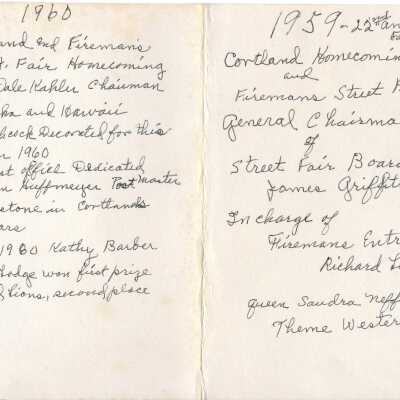 1960
and end Firemans
t. Fair Homecoming
Dale Kahler Chairman
ka and Hawaii
hcock Decorated for this
r 1960
st office Dedicated
n Huffmeyer Post Master
estone in Cortlands
ears
1960 Kathy Barber
Lodge won first prize
Lions, second place
1959-22nd an
Cortland Homecomin
and
Firemans Street F
General Chairma
of
Street Fair Board
James Griffit
In charge of
Firemans Entr
Richard L
queen Saudra Neff
Theme Wester